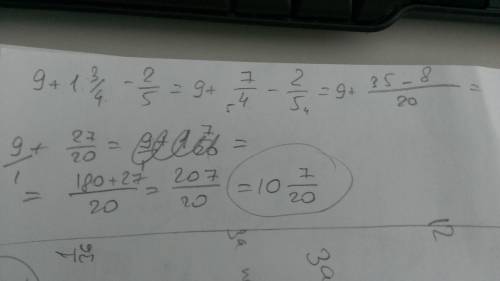 9 + 1 3/4 - 2/5 = 9 + 7/4 - 2/5 = 9 + (35 - 8)/20 =
9/1 + 27/20 =
= (180 + 27)/20 = 207/20 = 10 7/20
3а
3а
12